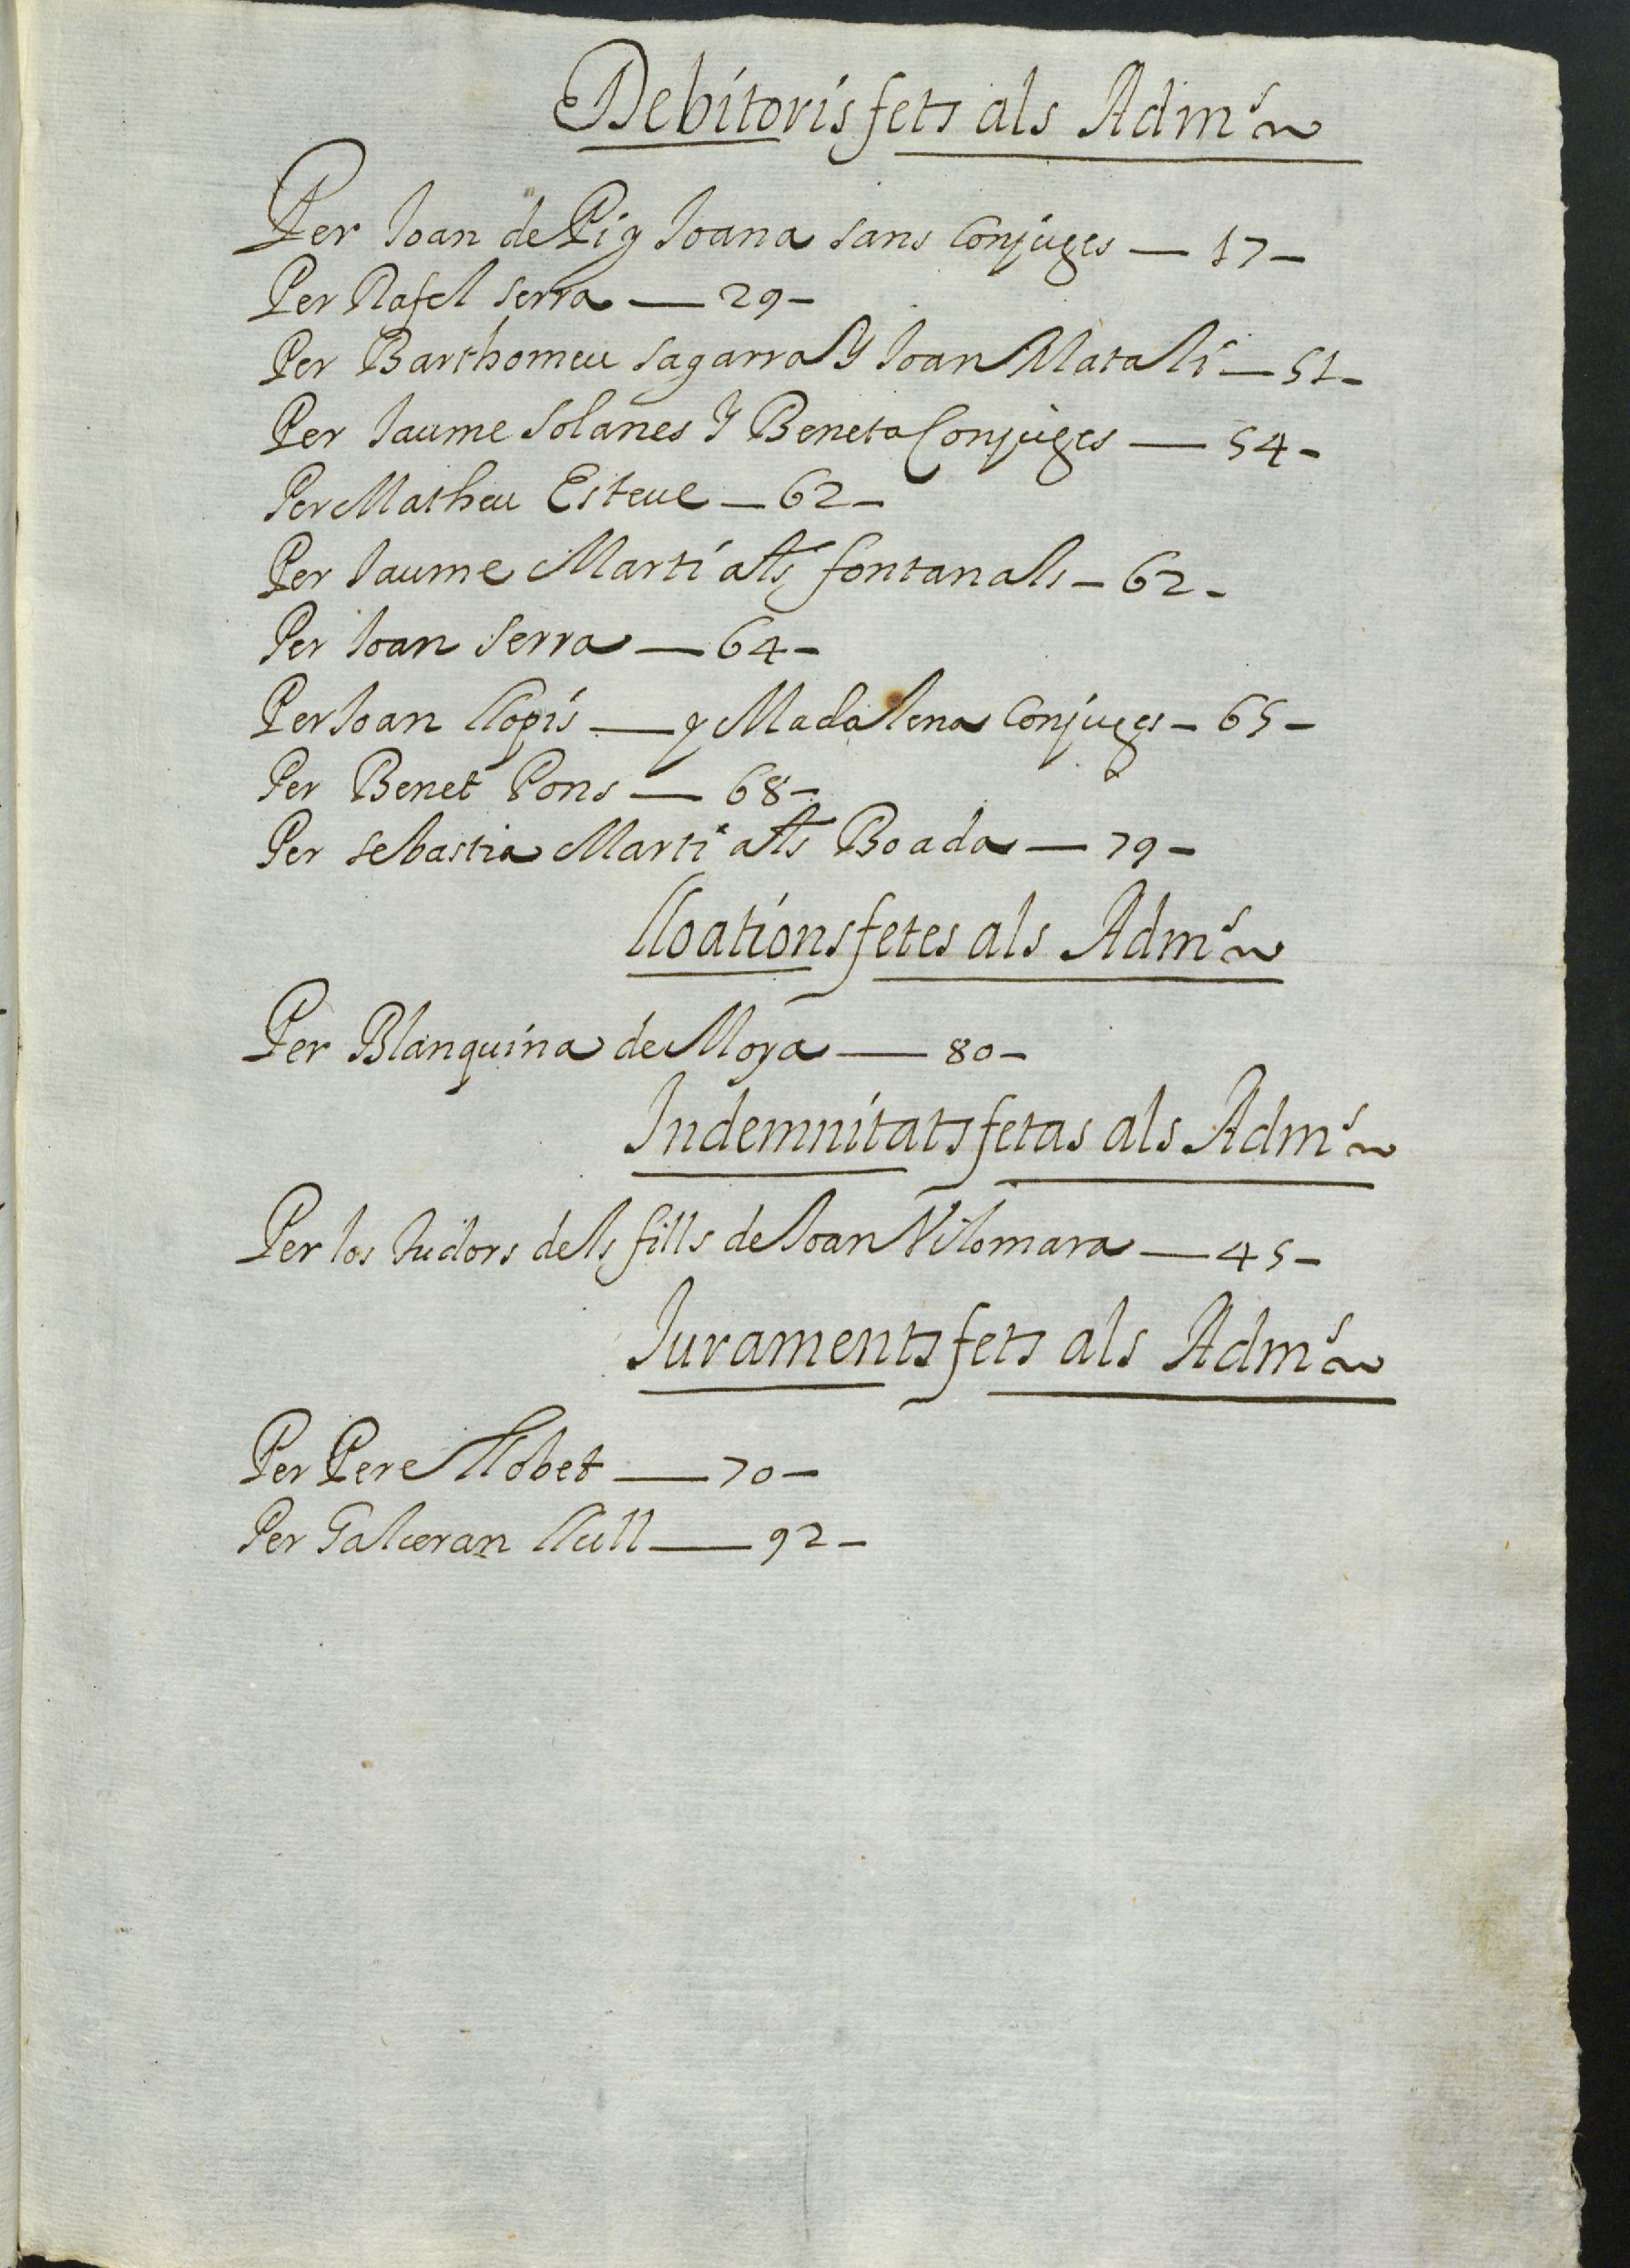 Debitoris fets als Adm.s
Per Joan de Pi y Joana sans Conjuges — 17 —
Per Rafel serra — 29 —
Per Barthomeu sagarra Y Joan Matali — 51 —
Per Jaume Solanes Y Beneta Conjuges — 54 —
Per Matheu Esteue — 62 —
Per Jaume Marti als fontanals — 62 —
Per Joan serra — 64 —
Per Joan llopis — y Madalena Conjuges — 65 —
Per Benet Pons — 68 —
Per sebastia Marti als Boada — 79 —
lloations fetes als Adm.s
Per Blanquina de Moya — 80 —
Indemnitats fetas als Adm.s
Per los tudors dels fills de Joan Vilomara — 45 —
Juraments fets als Adm.s
Per Pere llobet — 70 —
Per Galceran llull — 92 —